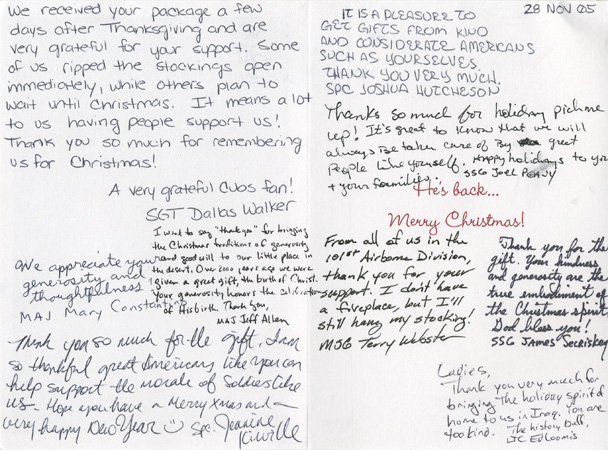 We received your package a few
days after Thanksgiving and are
very grateful for your support. Some
of us ripped the stockings open
immediately, while others plan to
wait until Christmas. It means a lot
to us having people support us!
Thank you so much for remembering
us for Christmas!
A very grateful CWOs fan!
SGT Dallas Walker
I want to say "thank you" for bringing
the Christmas traditions of generosity
and good will to our little place in
the desert. Over 2000 years ago we were
given a great gift, the birth of Christ.
Your generosity honors the celebration
of His birth. Thank you
MAJ Jeff Allen
We appreciate your
generosity and
thoughtfulness
MAJ Mary Constantino
Thank you so much for the gift, I am
so thankful great Americans like you can
help support the morale of Soldiers like
us. Hope you have a Merry Xmas and a
very happy New Year Spc. Jeanine
28 NOV 05
IT IS A PLEASURE TO
GET GIFTS FROM KIND
AND CONSIDERATE AMERICANS
SUCH AS YOURSELVES.
THANK YOU VERY MUCH.
SPC JOSHUA HUTCHESON
Thanks so much for holiday pick me
up! It's great to know that we will
always be taken care of by great
people like yourself. Happy holidays to you
+ your families. SSG Joel
He's back...
Merry Christmas!
From all of us in the
101st Airborne Division,
thank you for your
support. I don't have
a fireplace, but I'll
still hang my stocking!
MSG Terry Webster
Thank you for the
gift. Your kindness
and generosity are the
true embodiment of
the Christmas spirit.
God bless you!
SSG James
Ladies,
Thank you very much for
bringing the holiday spirit of
home to us in Iraq. You are
too kind. The history buff,
LTC Ed Loomis